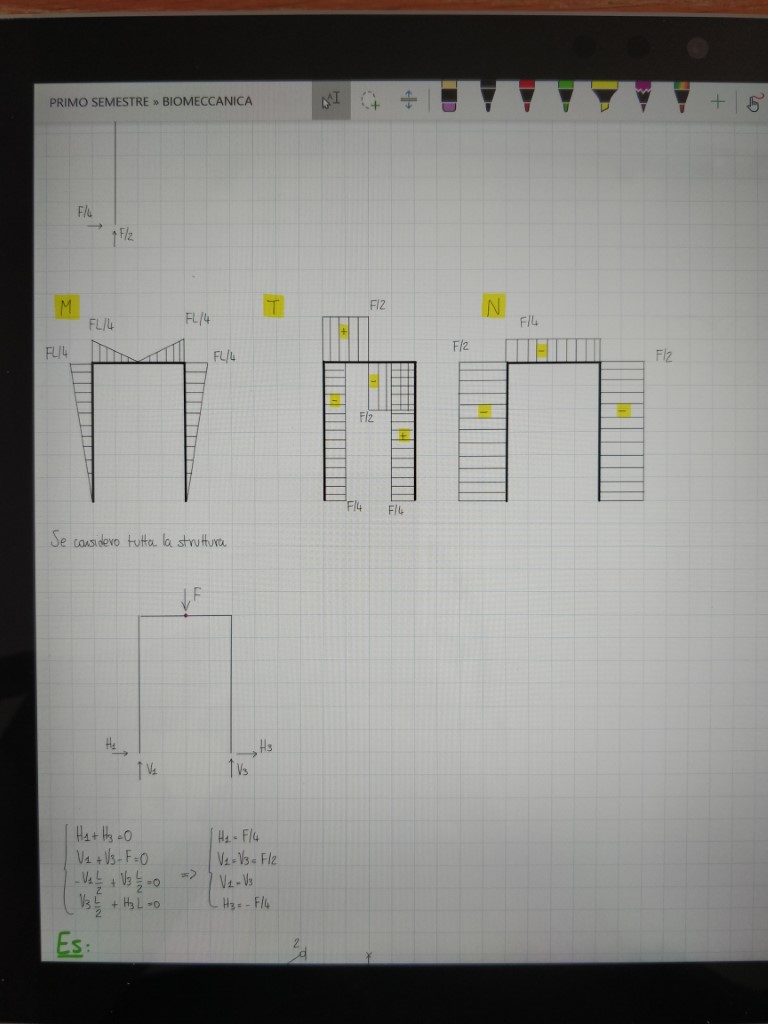 PRIMO SEMESTRE » BIOMECCANICA
F/4
F/2
M
T
N
FL/4
FL/4
FL/4
FL/4
F/2
+
-
-
F/2
+
F/4
F/4
F/4
F/2
-
F/2
-
-
Se considero tutta la struttura
F
H1
V1
H3
V3
H1 + H3 = 0
V1 + V3 - F = 0
-V1 L/2 + V3 L/2 = 0
V3 L/2 + H3 L = 0
=>
H1 = F/4
V1 = V3 = F/2
V1 = V3
H3 = - F/4
Es:
2
d